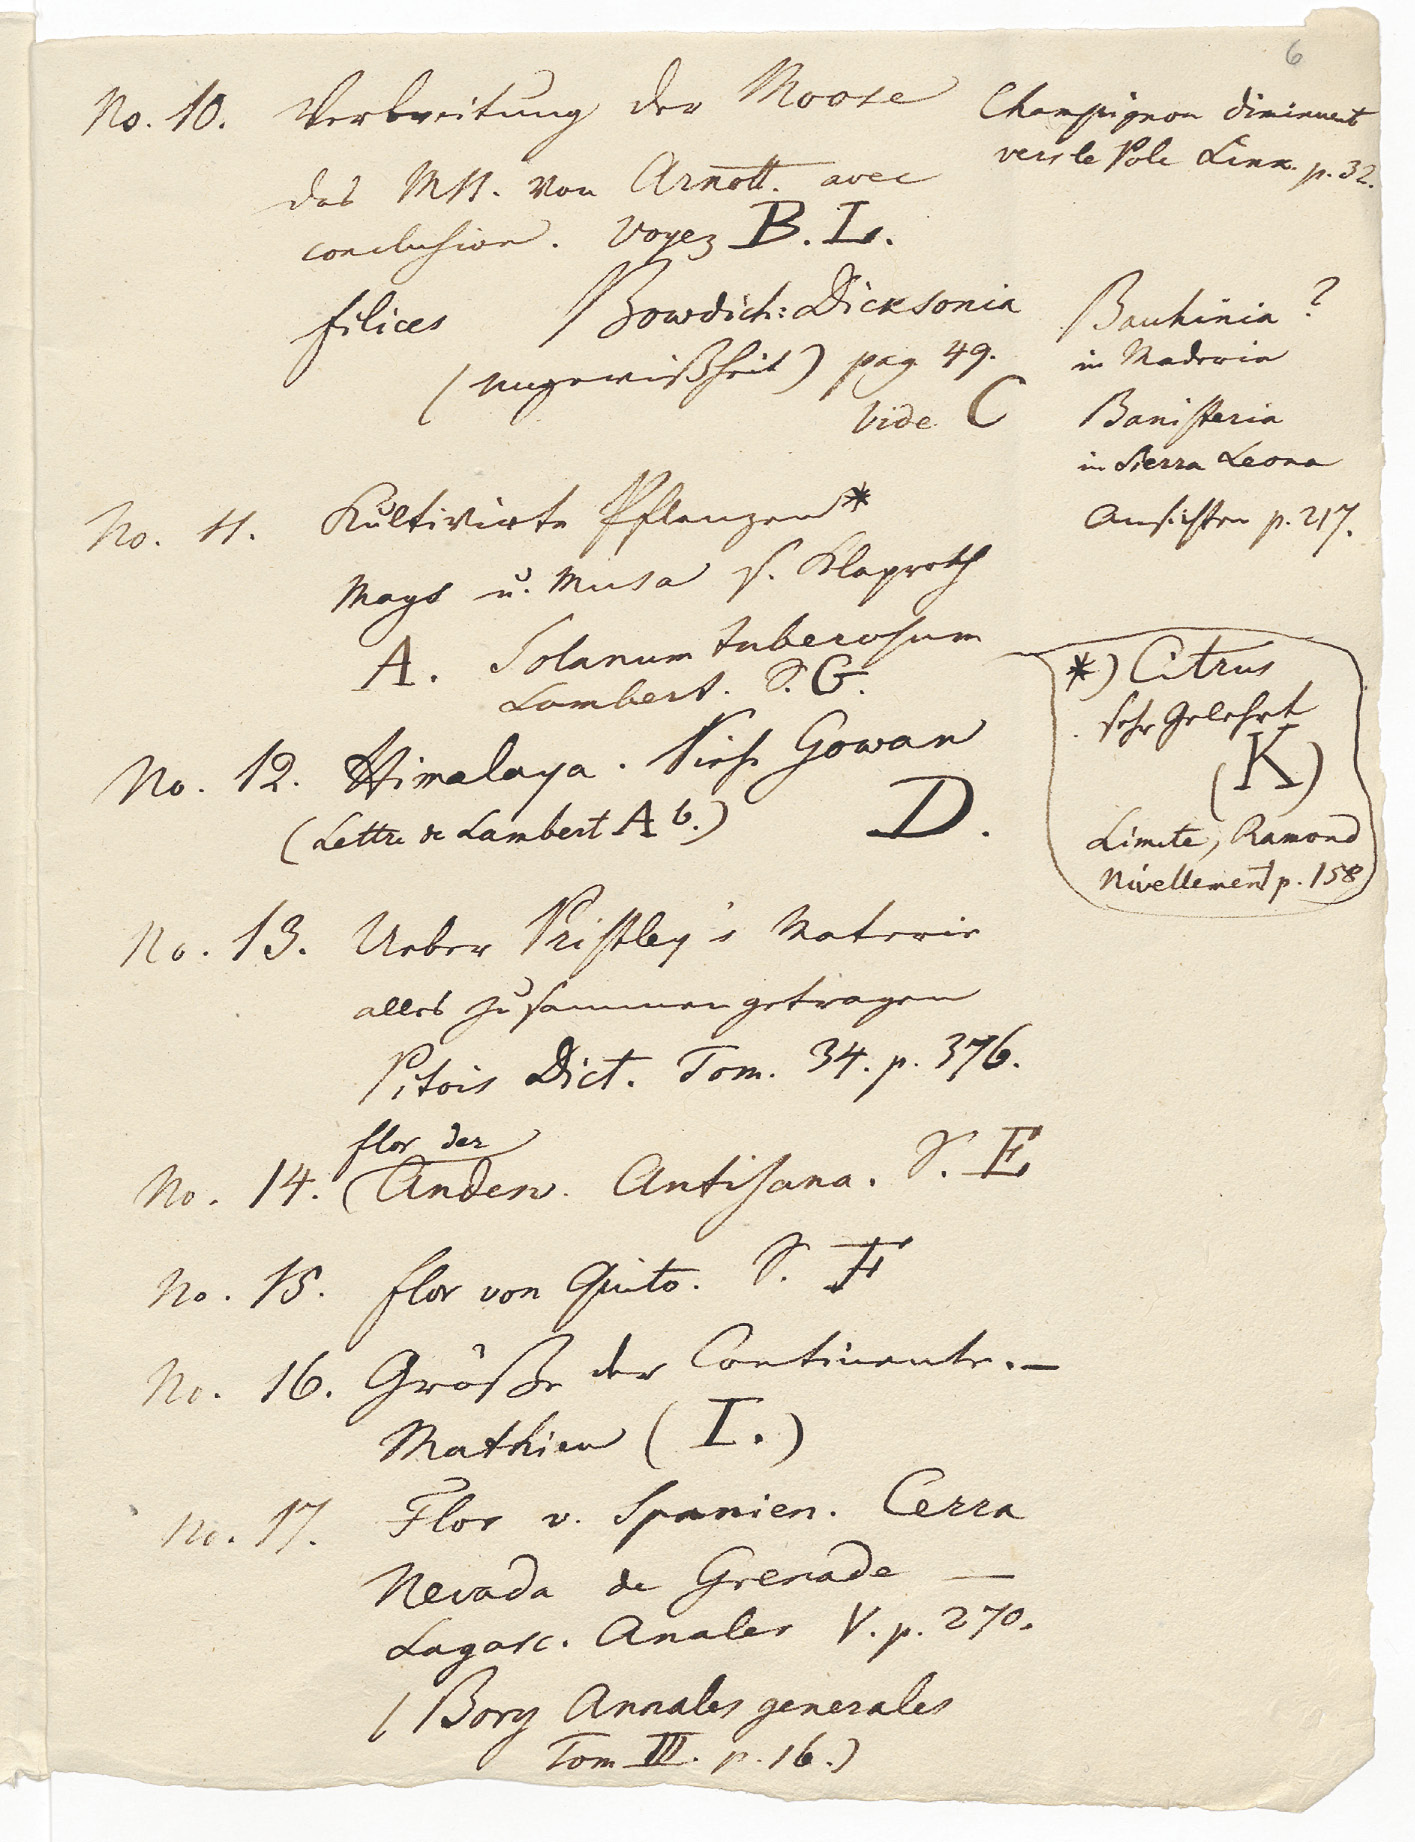 6
No. 10. Verbreitung der Moose
das MSS. von Arnott. avec
conclusion. Voyez B. L.
Filices Bowdich: Dicksonia
(Ungewißheit) pag 49.
vide C
Champignon diminuent
vers le Pole Link. p. 32.
Bauhinia ?
in Maderia
Banisteria
in Sierra Leona
Ansichten p. 217.
No. 11. Kultivirte Pflanzen*
Mays u. Musa s. Klaproth
A. Solanum tuberosum
Lambert. S. G.
*) Citrus
sehr gelehrt
(K)
Limite, Ramond
Nivellement p. 158
No. 12. Himalaya. Sieh Gowan
(Lettre de Lambert A b.) D.
No. 13. Ueber Pristley's Materie
alles zusammengetragen
Pitois Dict. Tom. 34. p. 376.
flor der
No. 14. (Anden. Antisana. S. E
No. 15. flor von Quito. S. F
No. 16. Größe der Continente. —
Mathieu (I.)
No. 17. Flor v. Spanien. Cerra
Nevada de Grenade —
Lagasc. Anales V. p. 270.
(Bory Annales generales
Tom III. p. 16.)